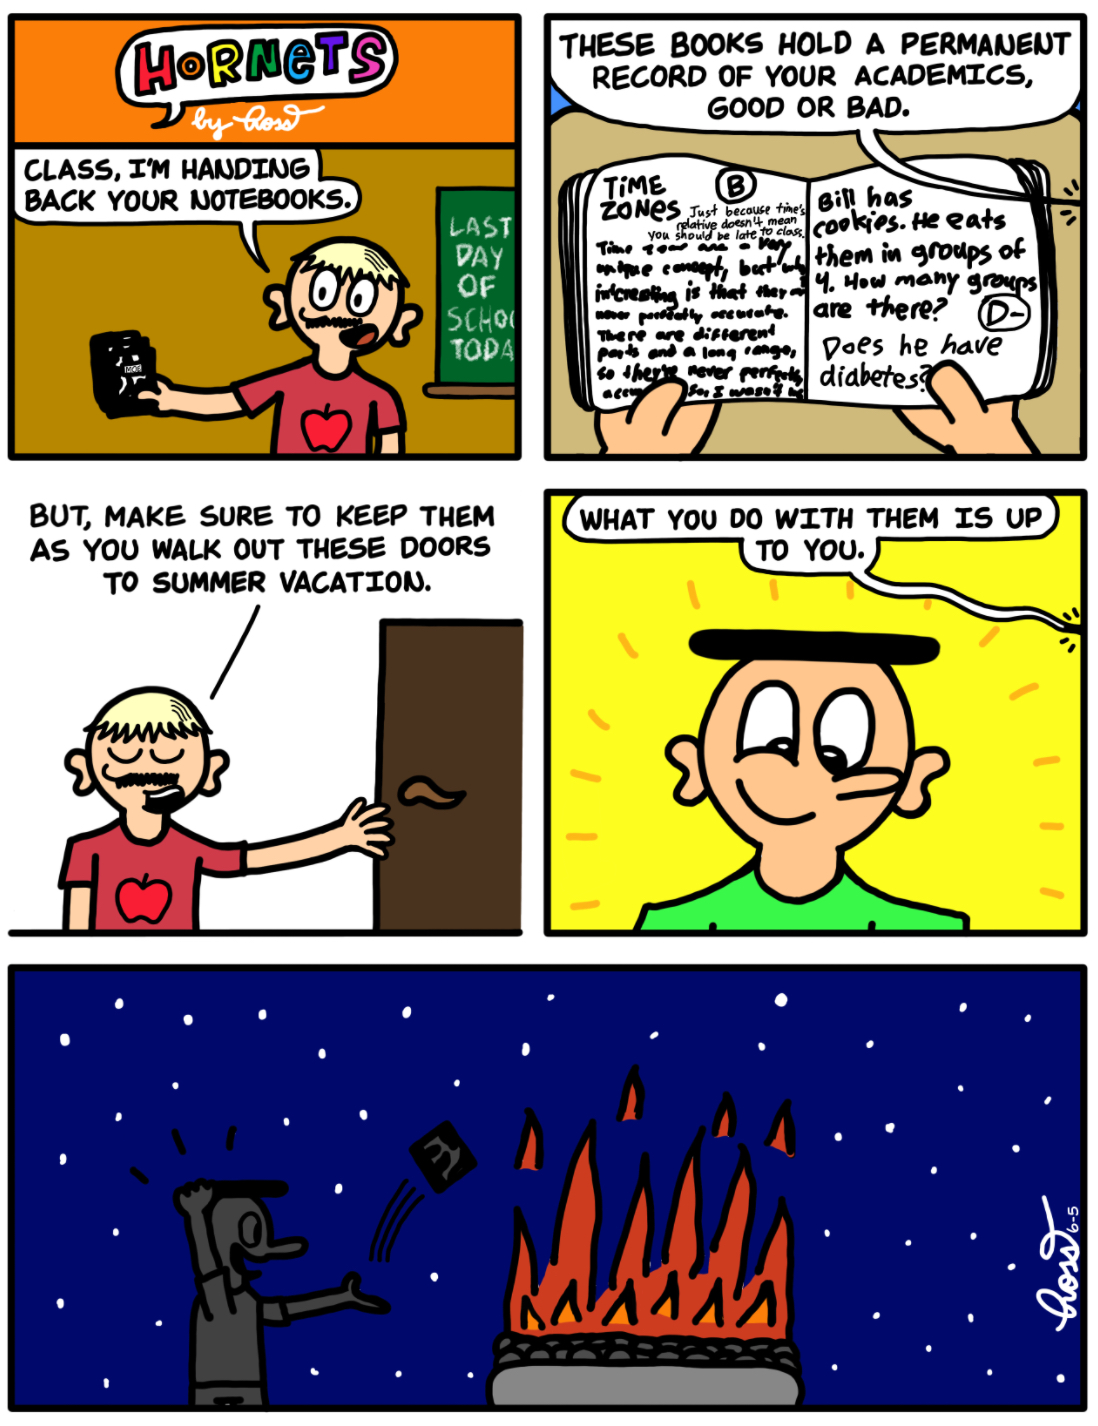 HORNETS
by Ross
CLASS, I'M HANDING
BACK YOUR NOTEBOOKS.
LAST
DAY
OF
SCHOO
TODA
MOE
THESE BOOKS HOLD A PERMANENT
RECORD OF YOUR ACADEMICS,
GOOD OR BAD.
TiME
ZONES
B
Just because time's
relative doesn't mean
you should be late to class.
Time zones are a very
unique concept, but why
interesting is that they
never perfectly accurate.
There are different
parts and a long range,
so they're never perfectly
So, I wasn't
Bill has
cookies. He eats
them in groups of
4. How many groups
are there?
D-
Does he have
diabetes?
BUT, MAKE SURE TO KEEP THEM
AS YOU WALK OUT THESE DOORS
TO SUMMER VACATION.
WHAT YOU DO WITH THEM IS UP
TO YOU.
Ross 6-5